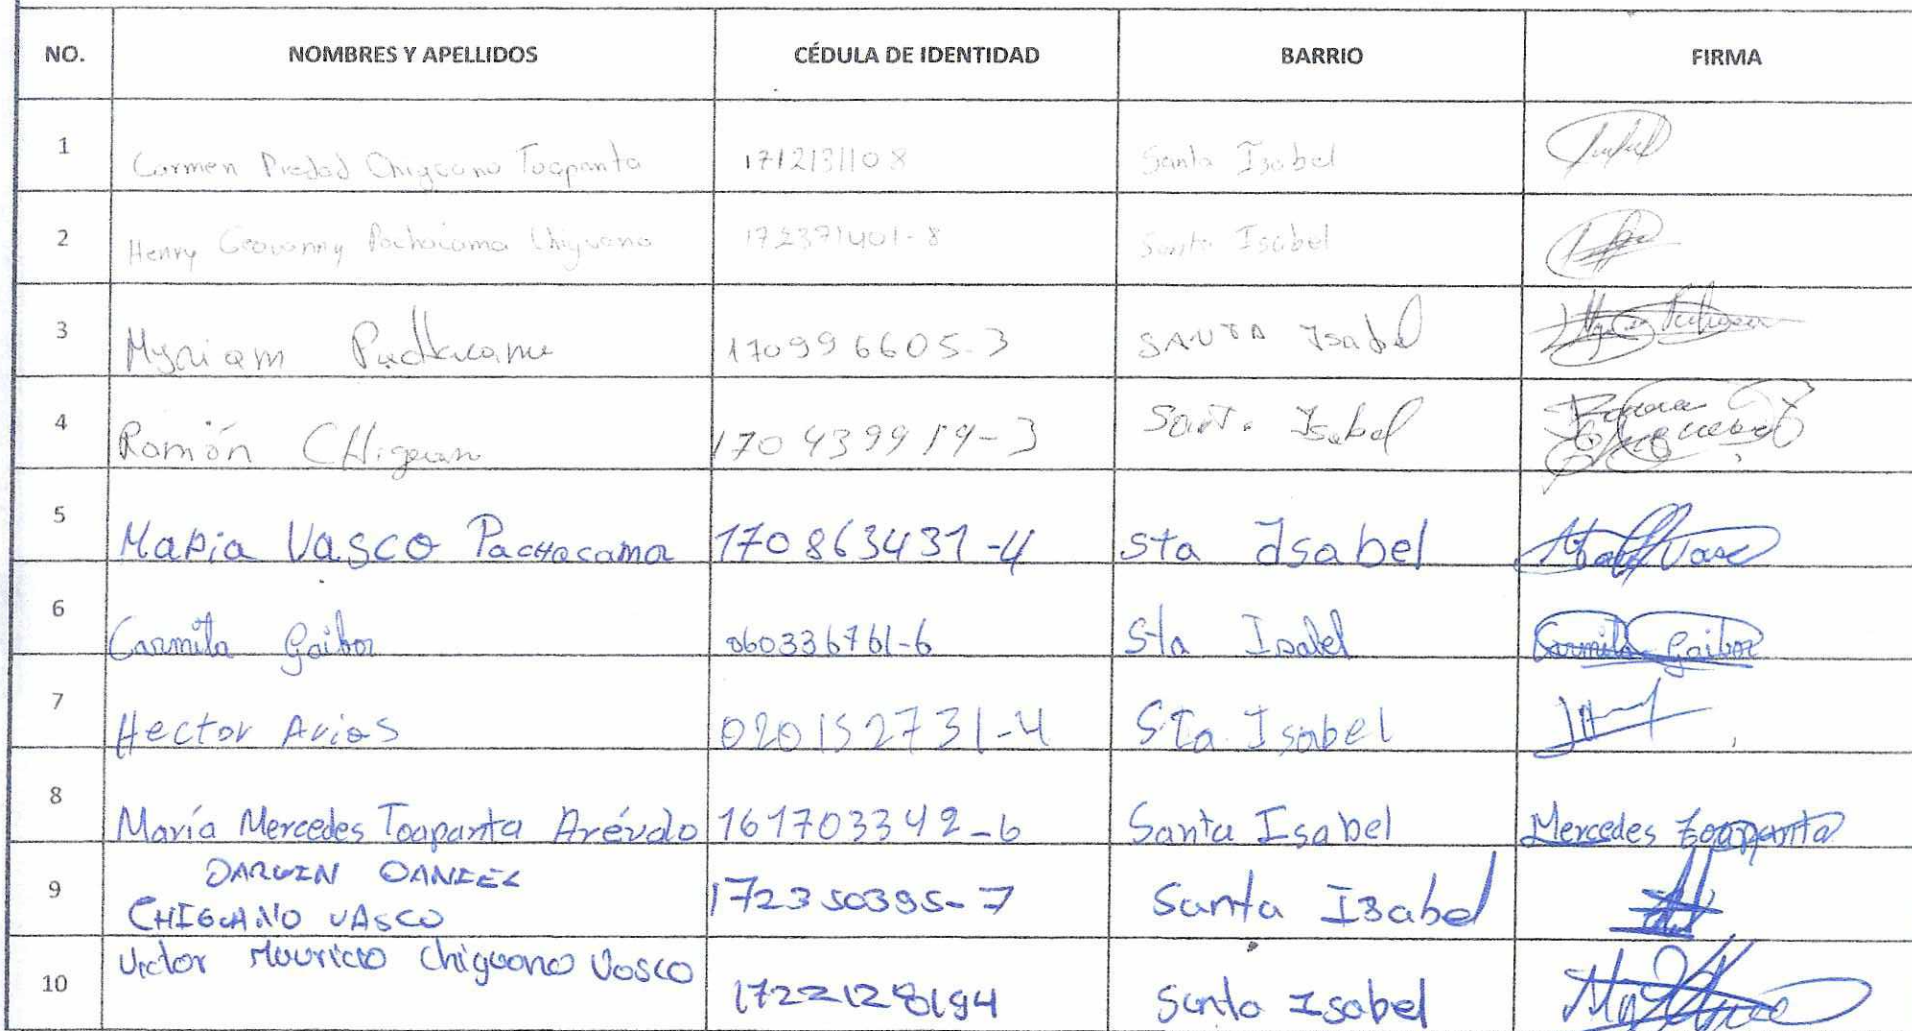 NO. NOMBRES Y APELLIDOS CÉDULA DE IDENTIDAD BARRIO FIRMA
1 Carmen Piedad Chiguano Toapanta 1712131108 Santa Isabel
2 Henry Geovanny Pachacama Chiguano 172371401-8 Santa Isabel
3 Myriam Pachacama 170996605-3 SANTA Isabel
4 Ramón CHiguan 170439919-3 Sant. Isabel
5 MaRia VASCO PacHacama 170863431-4 sta Isabel Vasc
6 Carmita Gaibor 060336761-6 Sta Isabel Carmita Gaibor
7 Hector Arias 020152731-4 STa Isabel
8 María Mercedes Toapanta Arévalo 161703342-6 Santa Isabel Mercedes Toapanta
9 DARWIN DANIEL
CHIGUANO VASCO 172350395-7 Santa Isabel
10 Victor Mauricio Chiguano Vasco 1722128194 Santa Isabel